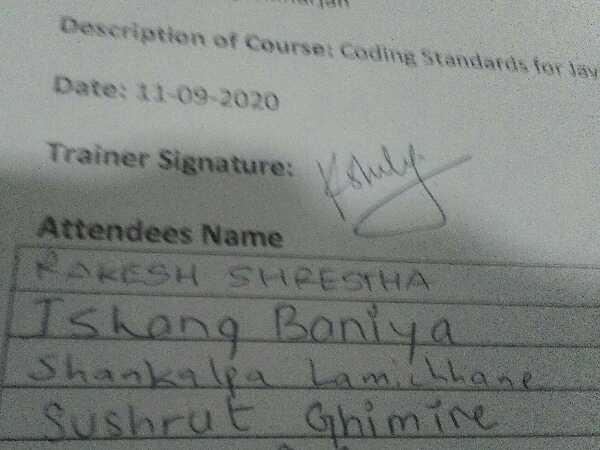 Description of Course: Coding Standards for Jav
Date: 11-09-2020
Trainer Signature:
Attendees Name
RAKESH SHRESTHA
Ishang Baniya
Shankalpa Lamichhane
Sushrut Ghimire